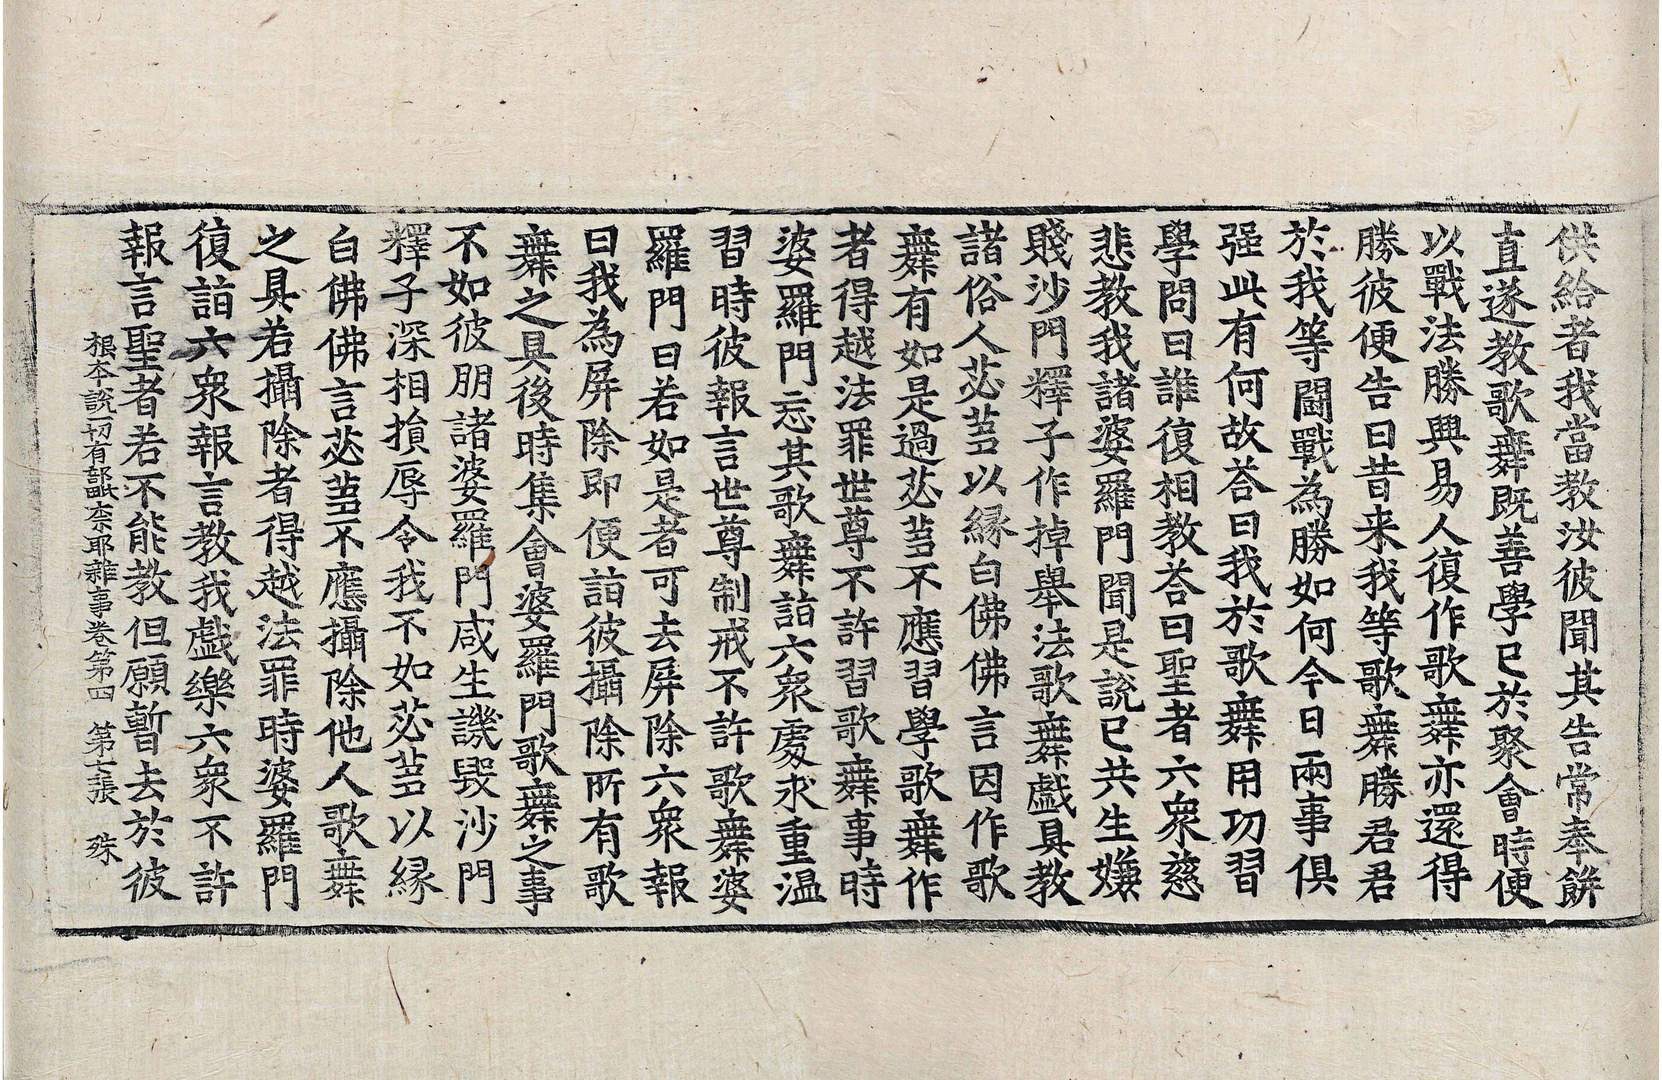 供給者我當教汝彼聞其告常奉餅
直遂教歌舞既善學已於聚會時便
以戰法勝興易人復作歌舞亦還得
勝彼便告曰昔来我等歌舞勝君君
於我等鬪戰為勝如何今日兩事俱
强此有何故荅曰我於歌舞用功習
學問曰誰復相教荅曰聖者六衆慈
悲教我諸婆羅門聞是說已共生嫌
賤沙門釋子作掉舉法歌舞戲具教
諸俗人苾芻以縁白佛佛言因作歌
舞有如是過苾芻不應習學歌舞作
者得越法罪世尊不許習歌舞事時
婆羅門忘其歌舞詣六衆處求重温
習時彼報言世尊制戒不許歌舞婆
羅門曰若如是者可去屏除六衆報
曰我為屏除即便詣彼攝除所有歌
舞之具後時集會婆羅門歌舞之事
不如彼朋諸婆羅門咸生譏毀沙門
釋子深相損辱令我不如苾芻以縁
白佛佛言苾芻不應攝除他人歌舞
之具若攝除者得越法罪時婆羅門
復詣六衆報言教我戲樂六衆不許
報言聖者若不能教但願暫去於彼
根本說一切有部毗柰耶雜事卷第四 第七張 殊